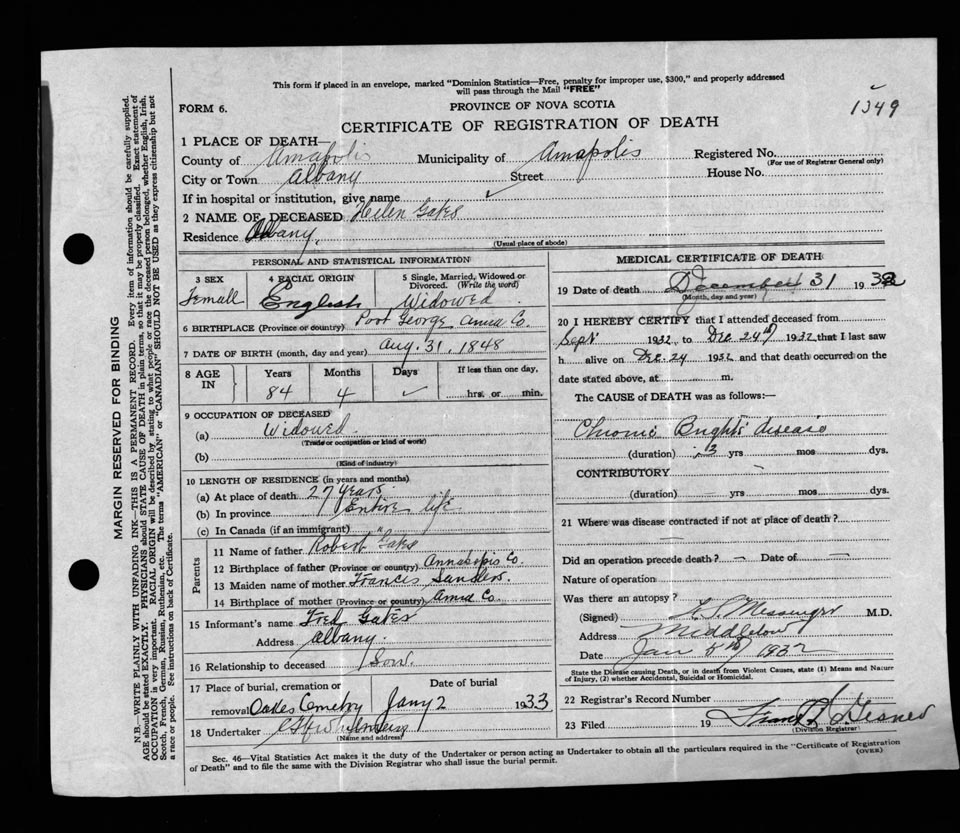 This form if placed in an envelope, marked "Dominion Statistics—Free, penalty for improper use, $300," and properly addressed
will pass through the Mail "FREE"
FORM 6.
PROVINCE OF NOVA SCOTIA
1349
CERTIFICATE OF REGISTRATION OF DEATH
1 PLACE OF DEATH—
County of Annapolis Municipality of Annapolis Registered No.
(For use of Registrar General only)
City or Town Albany Street House No.
If in hospital or institution, give name ✓
2 NAME OF DECEASED Helen Gates
Residence Albany.
(Usual place of abode)
PERSONAL AND STATISTICAL INFORMATION
3 SEX
Female
4 RACIAL ORIGIN
English
5 Single, Married, Widowed or Divorced. (Write the word)
Widowed
6 BIRTHPLACE (Province or country) Port George Anna Co.
7 DATE OF BIRTH (month, day and year) Aug. 31, 1848
8 AGE IN
Years Months Days If less than one day,
84 4 ✓ hrs. or min.
9 OCCUPATION OF DECEASED
(a) Widowed
(Trade or occupation or kind of work)
(b)
(Kind of industry)
10 LENGTH OF RESIDENCE (in years and months)
(a) At place of death 27 years
(b) In province Entire life
(c) In Canada (if an immigrant) "
Parents
11 Name of father Robert Gates
12 Birthplace of father (Province or country) Annapolis Co.
13 Maiden name of mother Francis Sanders.
14 Birthplace of mother (Province or country) Anna Co.
15 Informant's name Fred Gates
Address Albany.
16 Relationship to deceased Son.
17 Place of burial, cremation or removal Date of burial
Oakes Cemetry Jany 2 1933
18 Undertaker
(Name and address)
MEDICAL CERTIFICATE OF DEATH
19 Date of death December 31 1932
(Month, day and year)
20 I HEREBY CERTIFY that I attended deceased from
Sept 1932 to Dec. 24th 1932 that I last saw
h alive on Dec. 24 1932 and that death occurred on the
date stated above, at m.
The CAUSE of DEATH was as follows:—
Chronic Brights disease
(duration) 3 yrs mos dys.
CONTRIBUTORY —
(duration) — yrs mos dys.
21 Where was disease contracted if not at place of death?
—
Did an operation precede death? — Date of —
Nature of operation
Was there an autopsy?
(Signed) Messenger M.D.
Address Middleton
Date Jan 5th 1932
State the Disease causing Death, or in death from Violent Causes, state (1) Means and Nature
of Injury, (2) whether Accidental, Suicidal or Homicidal.
22 Registrar's Record Number
23 Filed 19 Frank
(Division Registrar)
Sec. 46—Vital Statistics Act makes it the duty of the Undertaker or person acting as Undertaker to obtain all the particulars required in the "Certificate of Registration
of Death" and to file the same with the Division Registrar who shall issue the burial permit.
(OVER)
MARGIN RESERVED FOR BINDING
N.B.—WRITE PLAINLY WITH UNFADING INK—THIS IS A PERMANENT RECORD. Every item of information should be carefully supplied.
AGE should be stated EXACTLY. PHYSICIANS should STATE CAUSE OF DEATH in plain terms, so that it may be properly classified. Exact statement of
OCCUPATION is very important. RACIAL ORIGIN will be described by stating to what people or race the deceased person belonged, whether English, Irish,
Scotch, French, German, Russian, Ruthenian, etc. The terms "AMERICAN" or "CANADIAN" SHOULD NOT BE USED as they express citizenship but not
a race or people. See instructions on back of Certificate.